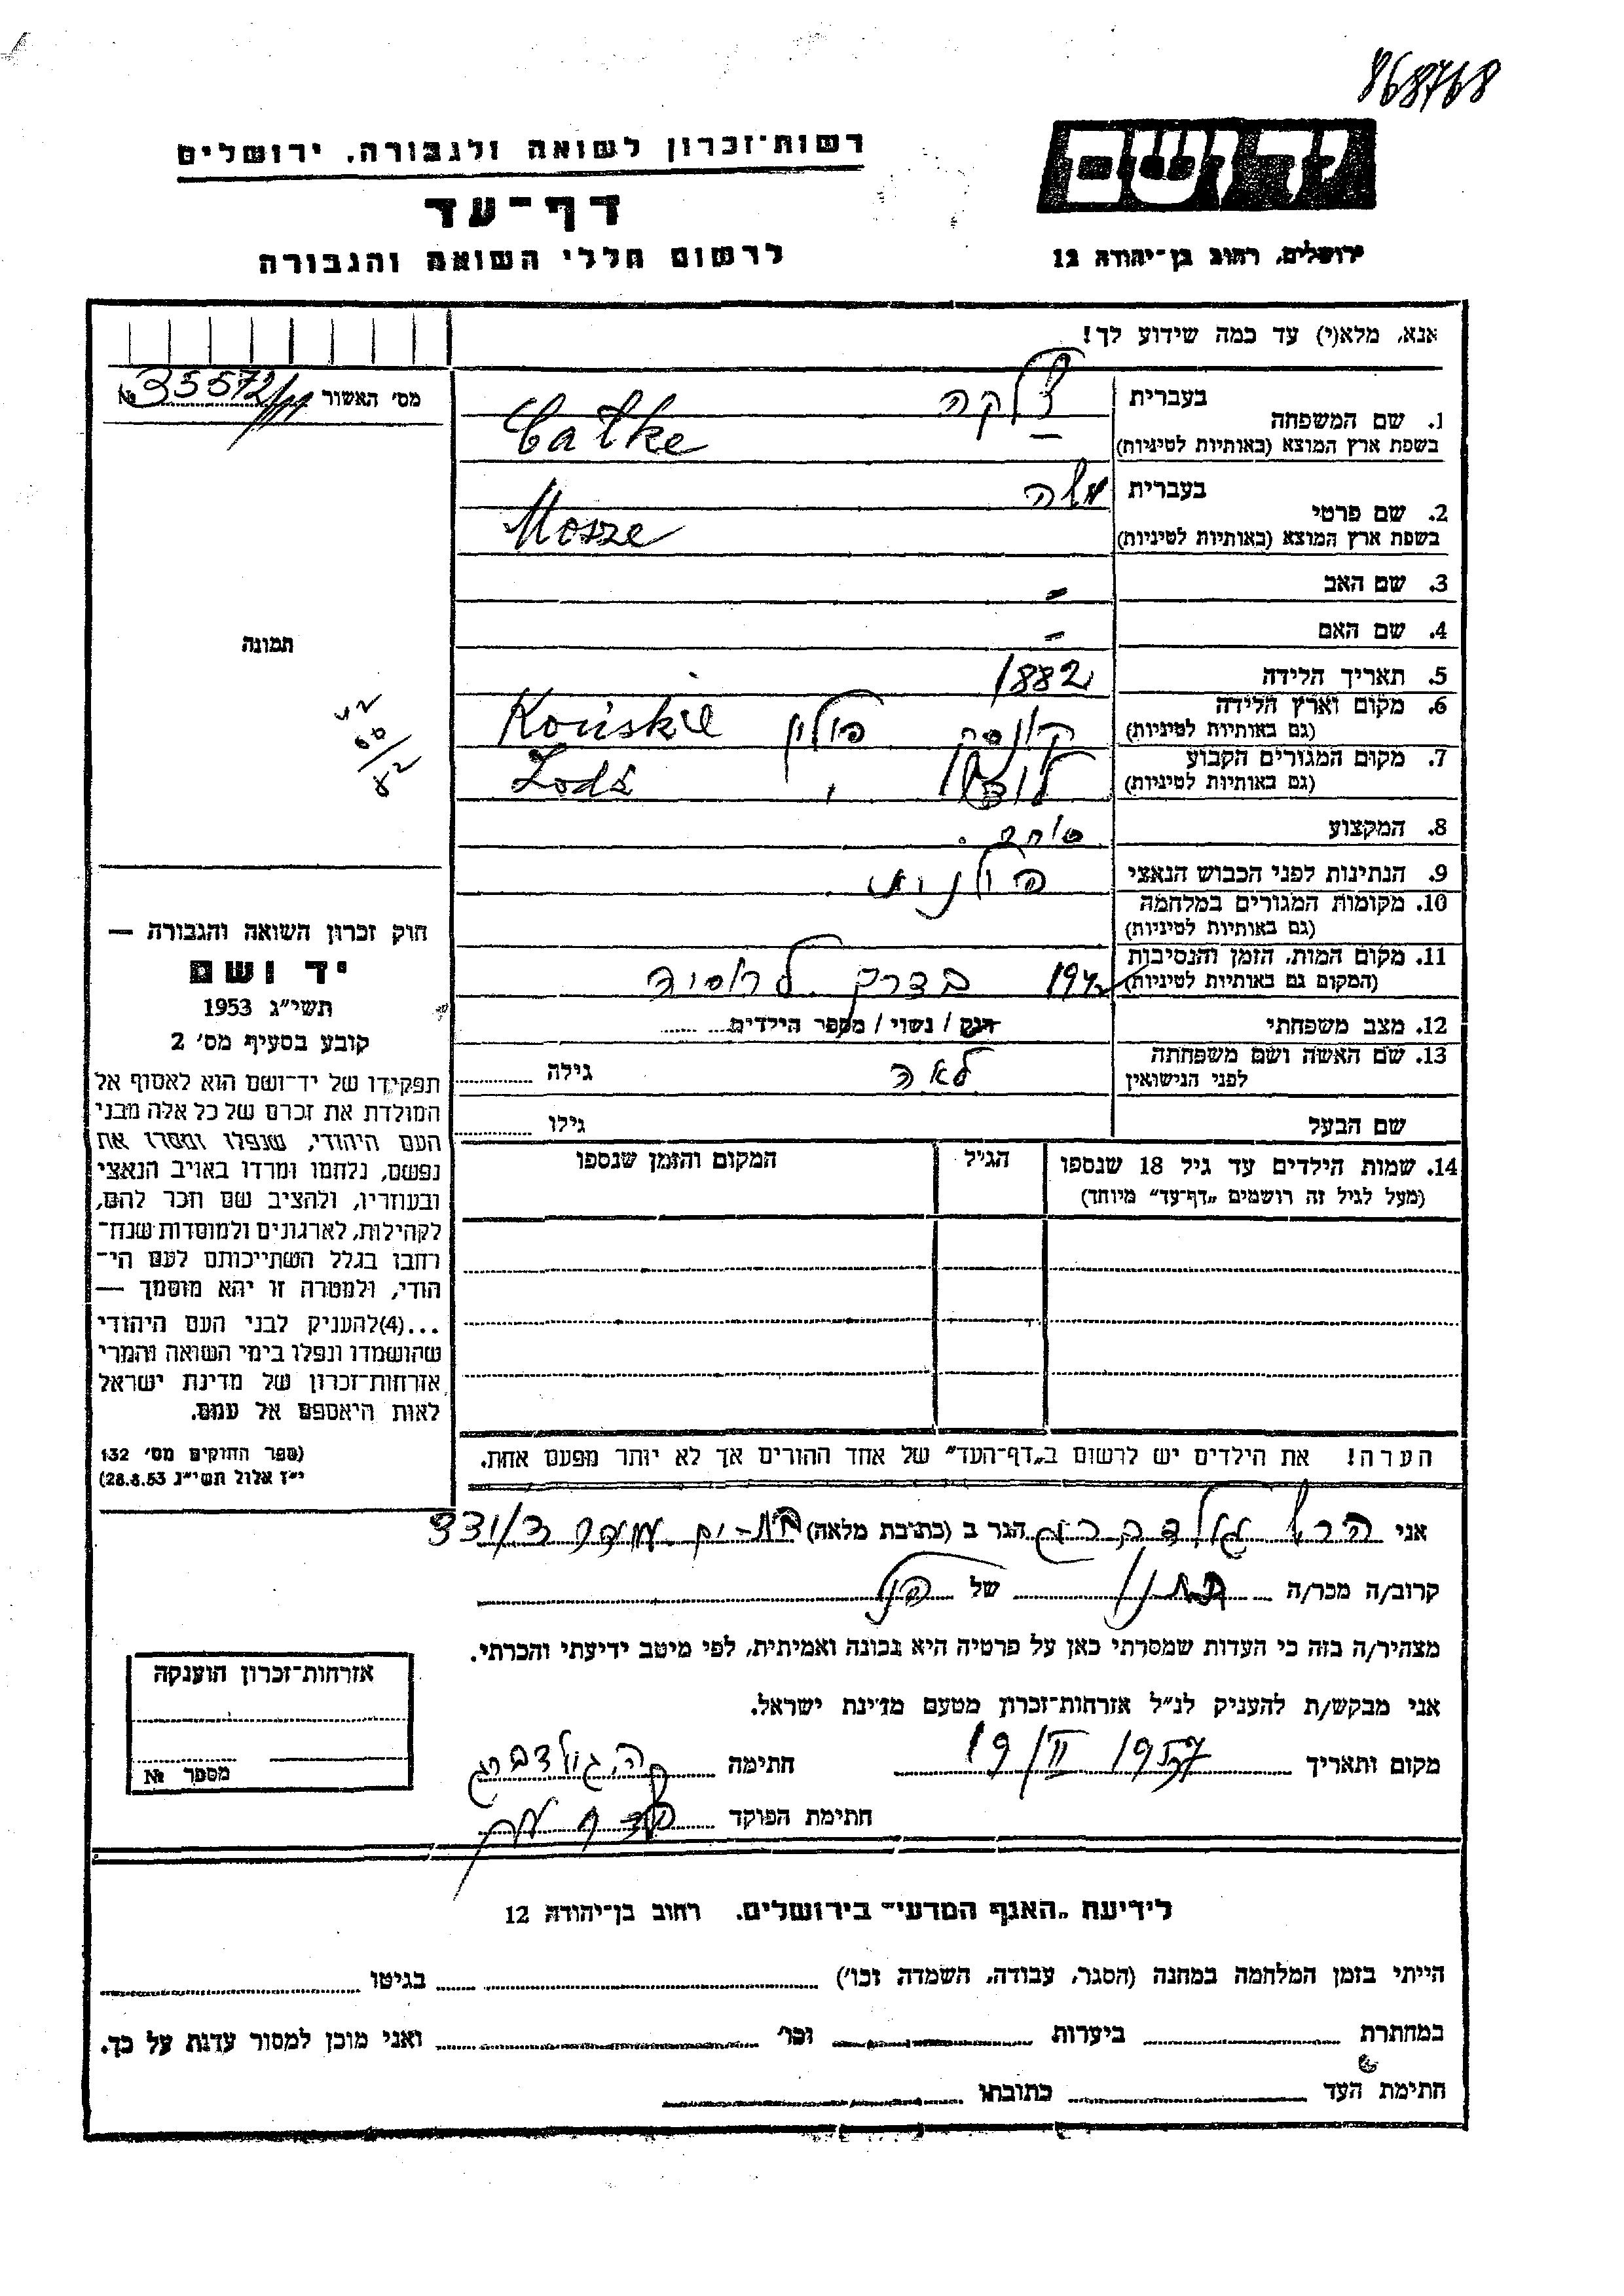 868768
יד ושם
ירושלים, רחוב בן־יהודה 12
רשות־זכרון לשואה ולגבורה, ירושלים
דף־עד
לרשום חללי השואה והגבורה
אנא, מלא(י) עד כמה שידוע לך!
מס' האשור № 35572/11
1. שם המשפחה
בעברית צלקה
בשפת ארץ המוצא (באותיות לטיניות) Całke
2. שם פרטי
בעברית משה
בשפת ארץ המוצא (באותיות לטיניות) Mosze
3. שם האב -
4. שם האם -
5. תאריך הלידה 1882
6. מקום וארץ הלידה
(גם באותיות לטיניות) פולין Końskie
7. מקום המגורים הקבוע
(גם באותיות לטיניות) לודז' Łodź
8. המקצוע סוחר.
9. הנתינות לפני הכבוש הנאצי פולנית
10. מקומות המגורים במלחמה
(גם באותיות לטיניות)
11. מקום המות, הזמן והנסיבות
(המקום גם באותיות לטיניות) 1942 בדרך לרוסיה
12. מצב משפחתי רווק / נשוי / מספר הילדים
13. שם האשה ושם משפחתה
לפני הנישואין לאה גילה
שם הבעל גילו
14. שמות הילדים עד גיל 18 שנספו
(מעל לגיל זה רושמים „דף־עד" מיוחד)
הגיל
המקום והזמן שנספו
הערה! את הילדים יש לרשום ב„דף־העד" של אחד ההורים אך לא יותר מפעם אחת.
תמונה
42
60
82
חוק זכרון השואה והגבורה —
יד ושם
תשי"ג 1953
קובע בסעיף מס' 2
תפקידו של יד־ושם הוא לאסוף אל
המולדת את זכרם של כל אלה מבני
העם היהודי, שנפלו ומסרו את
נפשם, נלחמו ומרדו באויב הנאצי
ובעוזריו, ולהציב שם וזכר להם,
לקהילות, לארגונים ולמוסדות שנח־
רבו בגלל השתייכותם לעם הי־
הודי, ולמטרה זו יהא מוסמך —
...(4)להעניק לבני העם היהודי
שהושמדו ונפלו בימי השואה והמרי
אזרחות־זכרון של מדינת ישראל
לאות היאספם אל עמם.
(ספר החוקים מס' 132
י"ז אלול תשי"ג 28.8.53)
אני גולדברג הגר ב (כתובת מלאה) בת-ים
קרוב/ה מכר/ה חתן של
מצהיר/ה בזה כי העדות שמסרתי כאן על פרטיה היא נכונה ואמיתית, לפי מיטב ידיעתי והכרתי.
אני מבקש/ת להעניק לנ"ל אזרחות־זכרון מטעם מדינת ישראל.
מקום ותאריך 19/II 1957 חתימה גולדברג
חתימת הפוקד
אזרחות־זכרון הוענקה
מספר №
לידיעת „האגף המדעי" בירושלים. רחוב בן־יהודה 12
הייתי בזמן המלחמה במחנה (הסגר, עבודה, השמדה וכו') בגיטו
במחתרת ביערות וכו' ואני מוכן למסור עדות על כך.
חתימת העד כתובתו